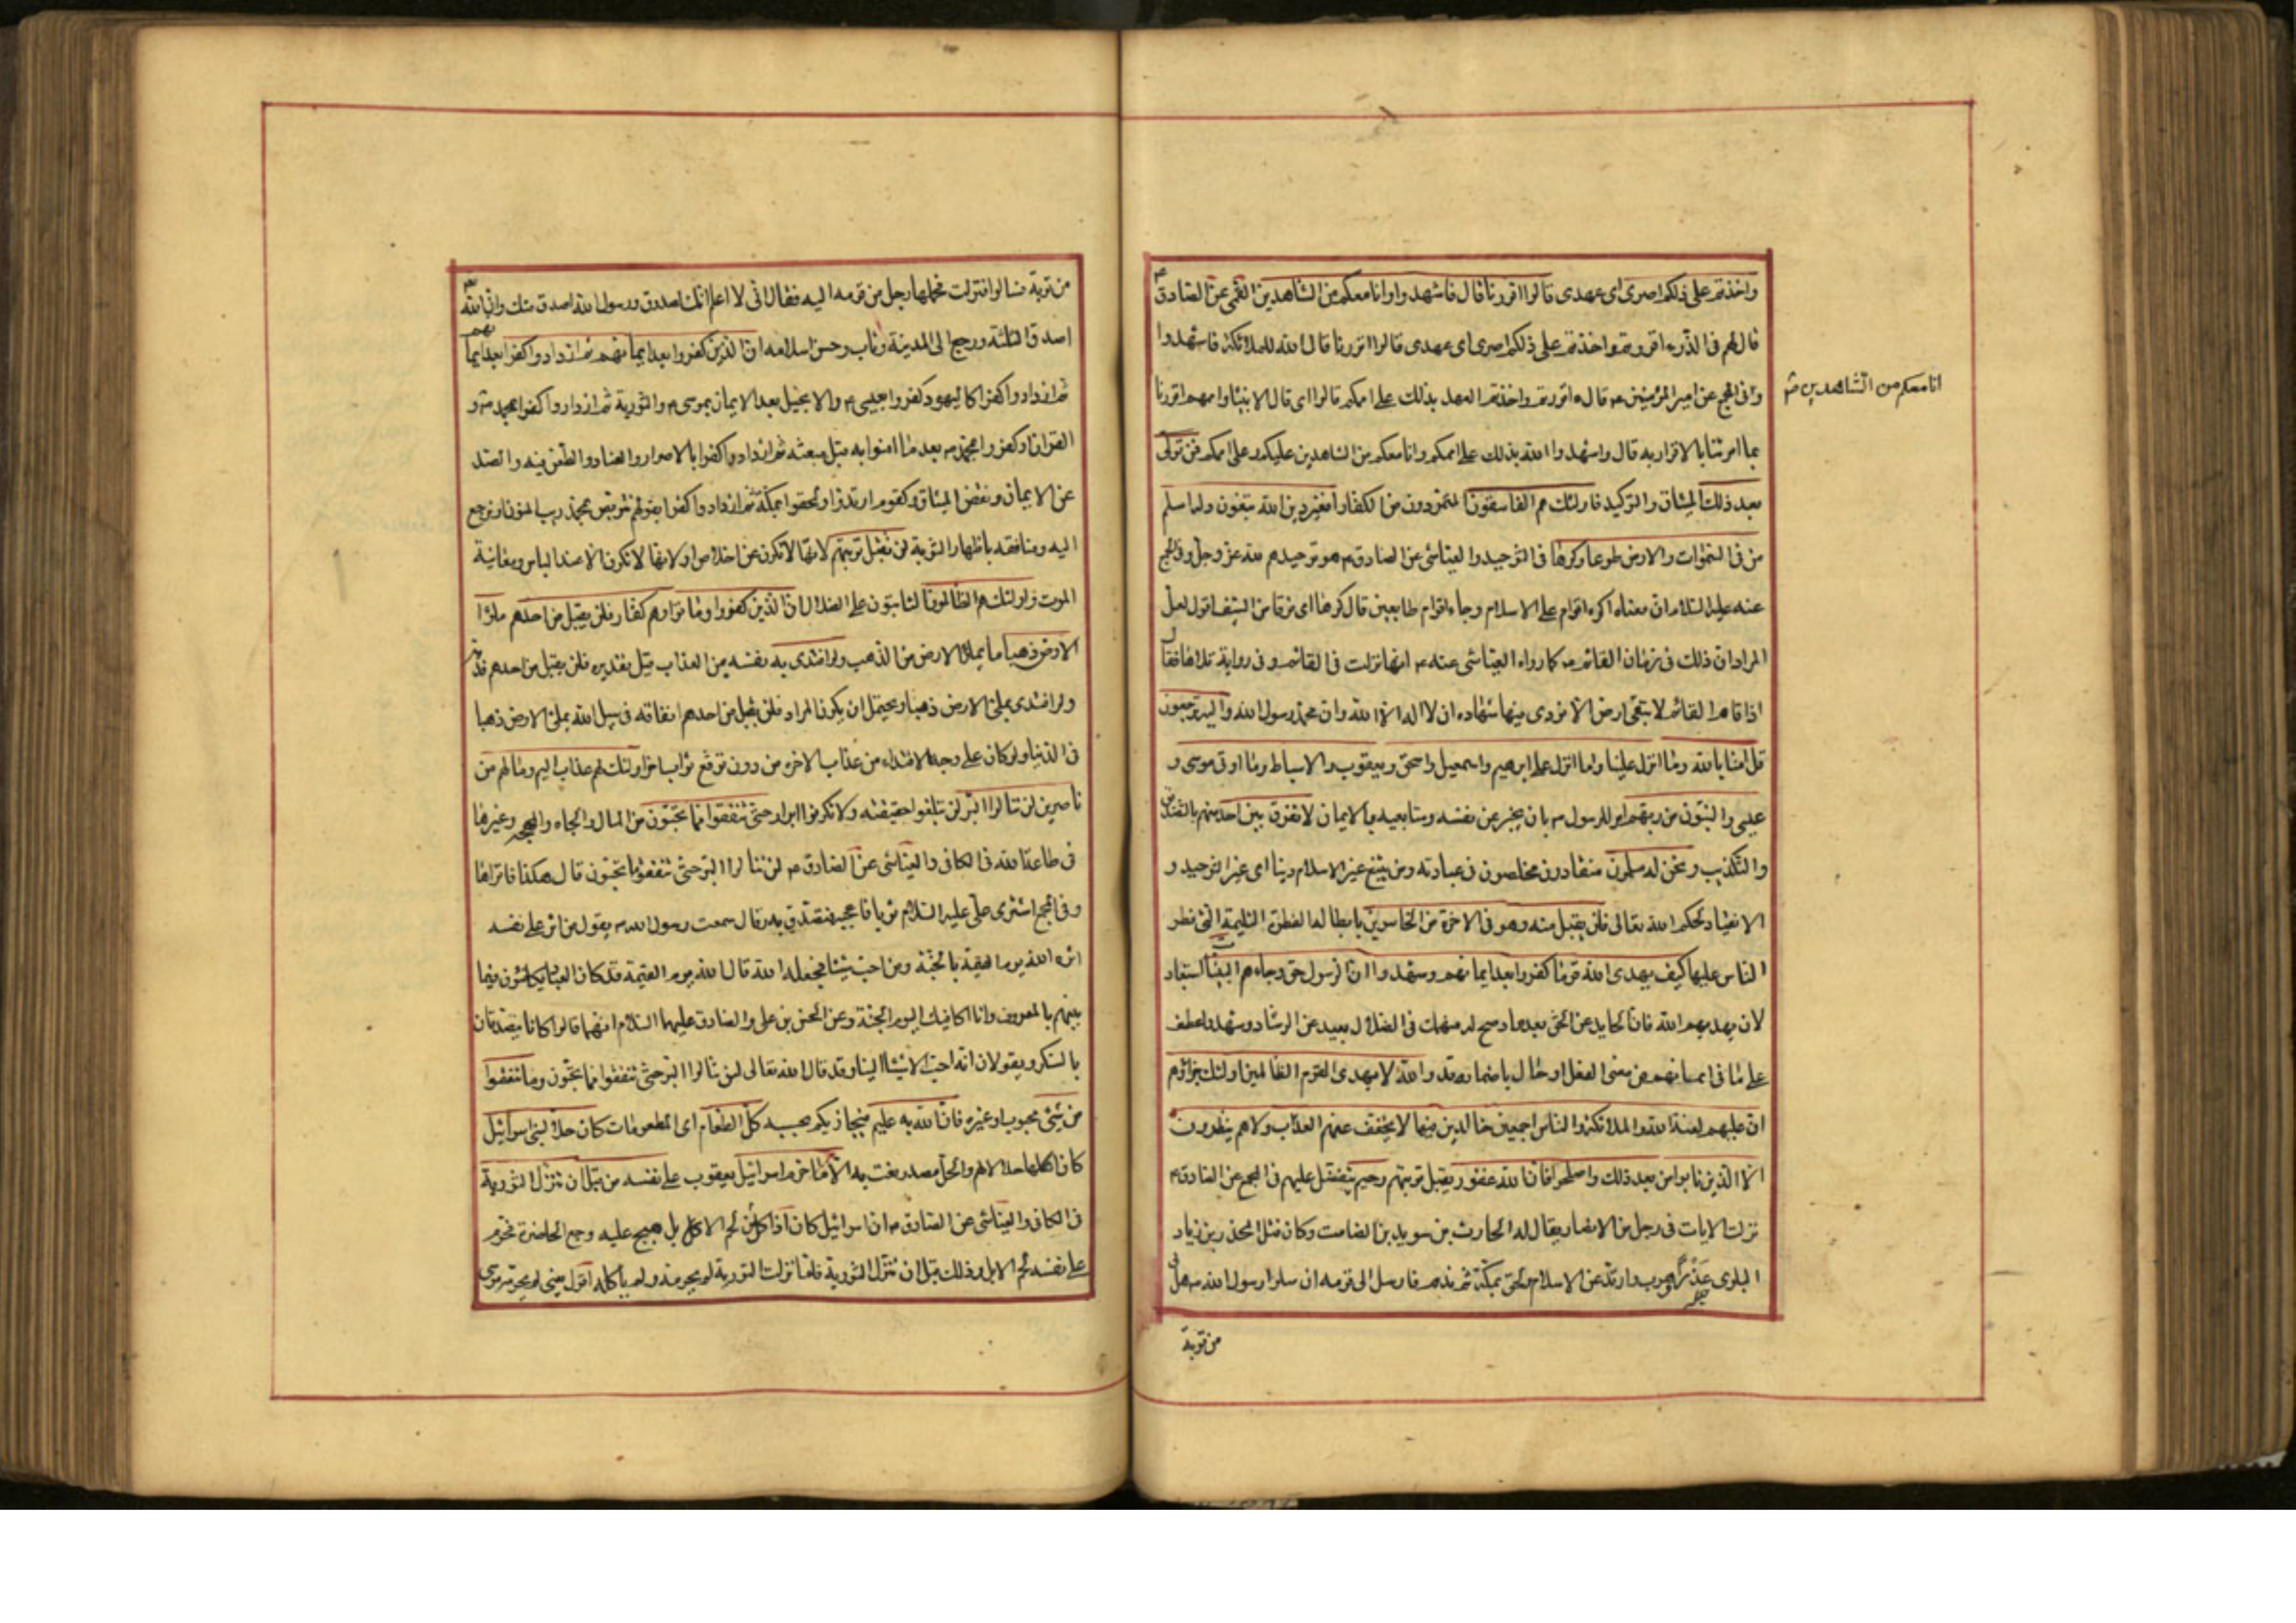 واخذتم على ذلكم اصرى اى عهدى قالوا اقررنا قال فاشهدوا وانا معكم من الشاهدين القمى عن الصادق ع
قال لهم فى الذر ءاقررتم واخذتم على ذلكم اصرى اى عهدى قالوا اقررنا قال الله للملائكة فاشهدوا
انا معكم من الشاهدين
وفى المجع عن امير المؤمنين ع قال ءاقررتم واخذتم العهد بذلك على اممكم قالوا اى قال الانبياء واممهم اقررنا
بما امرتنا بالاقرار به قال واشهدوا الله بذلك على اممكم وانا معكم من الشاهدين عليكم وعلى اممكم فمن تولى
بعد ذلك الميثاق والتوكيد فاولئك هم الفاسقون المتمردون من الكفار افغير دين الله تبغون وله اسلم
من فى السموات والارض طوعا وكرها فى التوحيد والعياشى عن الصادق ع هو توحيدهم لله عز وجل وفى المجع
عنه عليه السلام ان معناه اكره اقوام على الاسلام وجاء اقوام طايعين قال كرها اى فرقا من السيف اقول لعل
المراد ان ذلك فى زمان القائم ع كما رواه العياشى عنه ع انها نزلت فى القائم و فى رواية تلاها فقال
اذا قام القائم لا تبقى ارض الا نودى فيها شهادة ان لا اله الا الله وان محمدا رسول الله واليه ترجعون
قل امنا بالله وما انزل علينا وما انزل على ابرهيم واسمعيل واسحق ويعقوب والاسباط وما اوتى موسى و
عيسى والنبيون من ربهم امر للرسول ص بان يخبر عن نفسه ومتابعيه بالايمان لا نفرق بين احد منهم بالتصديق
والتكذيب ونحن له مسلمون منقادون مخلصون فى عبادته ومن يبتغ غير الاسلام دينا اى غير التوحيد و
الانقياد لحكم الله تعالى فلن يقبل منه وهو فى الاخرة من الخاسرين بابطاله الفطرة السليمة التى فطر
الناس عليها كيف يهدى الله قوما كفروا بعد ايمانهم وشهدوا ان الرسول حق وجاءهم البينات استبعاد
لان يهديهم الله فان الحايد عن الحق بعد ما وضح له منهمك فى الضلال بعيد عن الرشاد وشهدوا عطف
على ما فى ايمانهم من معنى الفعل او حال باضمار قد والله لا يهدى القوم الظالمين اولئك جزاؤهم
ان عليهم لعنة الله والملائكة والناس اجمعين خالدين فيها لا يخفف عنهم العذاب ولا هم ينظرون
الا الذين تابوا من بعد ذلك واصلحوا فان الله غفور يقبل توبتهم رحيم يتفضل عليهم فى المجع عن الصادق ع
نزلت الايات فى رجل من الانصار يقال له الحارث بن سويد بن الصامت وكان قتل المحذر بن زياد
البلوى غدرا وهرب وارتد عن الاسلام ولحق بمكة ثم ندم فارسل الى قومه ان سلوا رسول الله ص هل لى
من توبة
من توبة فسالوا فنزلت فحملها رجل من قومه اليه فقال انى لا اعلم انك لصدوق ورسول الله اصدق منك وان الله
اصدق الثلثة ورجع الى المدينة وتاب وحسن اسلامه ان الذين كفروا بعد ايمانهم ثم ازدادوا كفرا بعد ايمانهم
ثم ازدادوا كفرا كاليهود كفروا بعيسى ع والانجيل بعد الايمان بموسى ع والتورية ثم ازدادوا كفرا بمحمد ص و
القران او كفروا بمحمد ص بعد ما امنوا به قبل مبعثه ثم ازدادوا كفرا بالاصرار والعناد والطعن فيه والصد
عن الايمان ونقض الميثاق وكقوم ارتدوا ولحقوا بمكة ثم ازدادوا كفرا بقولهم نتربص بمحمد ريب المنون او نرجع
اليه وننافقه باظهار التوبة لن تقبل توبتهم لانها لا تكون عن اخلاص او لانها لا تكون الا عند الياس ومعاينة
الموت واولئك هم الظالون الثابتون على الضلال ان الذين كفروا وماتوا وهم كفار فلن يقبل من احدهم ملؤا
الارض ذهبا ما يملأ الارض من الذهب ولو افتدى به نفسه من العذاب قيل تقديره فلن يقبل من احدهم فدية
ولو افتدى بملئ الارض ذهبا ويحتمل ان يكون المراد فلن يقبل من احدهم انفاقه فى سبيل الله بملئ الارض ذهبا
فى الدنيا ولو كان على وجه الافتداء من عذاب الاخرة من دون توقع ثواب اخر اولئك لهم عذاب اليم وما لهم من
ناصرين لن تنالوا البر لن تبلغوا حقيقته ولا تكونوا ابرار حتى تنفقوا مما تحبون من المال والجاه والمهجة وغيرها
فى طاعة الله فى الكافى والعياشى عن الصادق ع لن تنالوا البر حتى تنفقوا ما تحبون قال هكذا فاقراها
وفى المجع اشترى على عليه السلام ثوبا فاعجبه فتصدق به وقال سمعت رسول الله ص يقول من اثر على نفسه
اثره الله يوم القيمة بالجنة ومن احب شيئا فجعله لله قال الله يوم القيمة قد كان العباد يكافئون فيما
بينهم بالمعروف وانا اكافيك اليوم الجنة وعن الحسين بن على والصادق عليهما السلام انهما قالوا كانا يتصدقان
بالسكر ويقولان انه احب الاشياء الينا وقد قال الله تعالى لن تنالوا البر حتى تنفقوا مما تحبون وما تنفقوا
من شئ محبوب او غيره فان الله به عليم فيجازيكم بحسبه كل الطعام اى المطعومات كان حلا لبنى اسرائيل
كان اكلها حلالا لهم والحل مصدر نعت به الا ما حرم اسرائيل يعقوب على نفسه من قبل ان تنزل التورية
فى الكافى والعياشى عن الصادق ع ان اسرائيل كان اذا اكل من لحم الابل هيج عليه وجع الخاصرة فحرم
على نفسه لحم الابل وذلك قبل ان تنزل التورية فلما نزلت التورية لم يحرمه ولم ياكله اقول يعنى لم يحرمه موسى